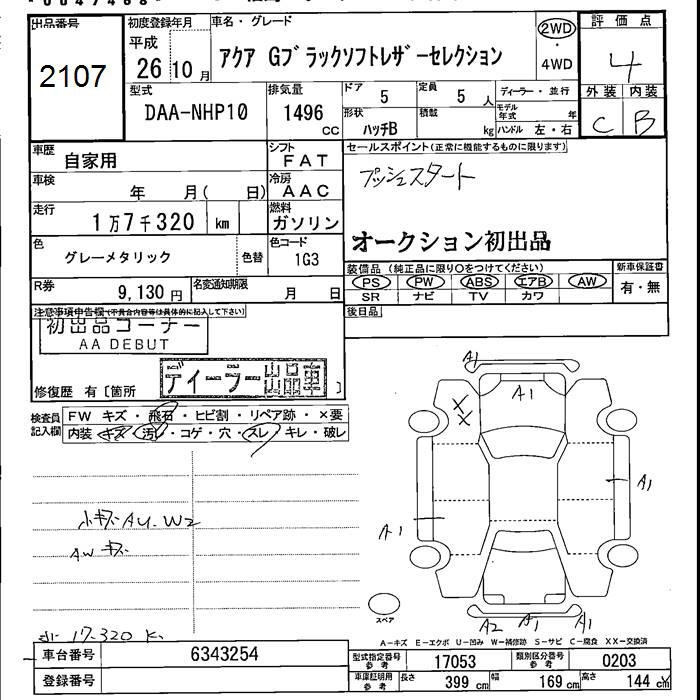 出品番号
2107
初度登録年月
平成
26 10 月
車名・グレード
アクア Gブラックソフトレザーセレクション
2WD
・
4WD
評価点
4
外装 内装
C B
型式
DAA-NHP10
排気量
1496
cc
ドア 5
定員 5 人
形状
ハッチB
積載
kg
ディーラー・並行
モデル年式 年
ハンドル 左・右
車歴 自家用
シフト
FAT
セールスポイント(正常に機能するものに限ります)
プッシュスタート
車検 年 月( 日)
冷房
AAC
走行 1万7千320 km
燃料
ガソリン
オークション初出品
色 グレーメタリック
色替
色コード
1G3
装備品 (純正品に限り○をつけてください)
PS PW ABS エアB AW
SR ナビ TV カワ
新車保証書
有・無
R券 9,130 円
名変通知期限
月 日
後日品
注意事項申告欄(不具合内容等は具体的に記入して下さい)
初出品コーナー
AA DEBUT
修復歴 有〔箇所 〕
ディーラー出品車
検査員
記入欄
FW キズ・飛石・ヒビ割・リペア跡・×要
内装 キズ・汚レ・コゲ・穴・スレ・キレ・破レ
A1
A1
XX
A1
A1
小キズ AU-W2
AW キズ
A2 A1 A1
スペア
A-キズ E-エクボ U-凹み W-補修跡 S-サビ C-腐食 XX-交換済
17-320 K
車台番号 6343254
登録番号
型式指定番号
参考
17053
類別区分番号
参考
0203
車庫証明用
参考
長さ 399 cm
幅 169 cm
高さ 144 cm